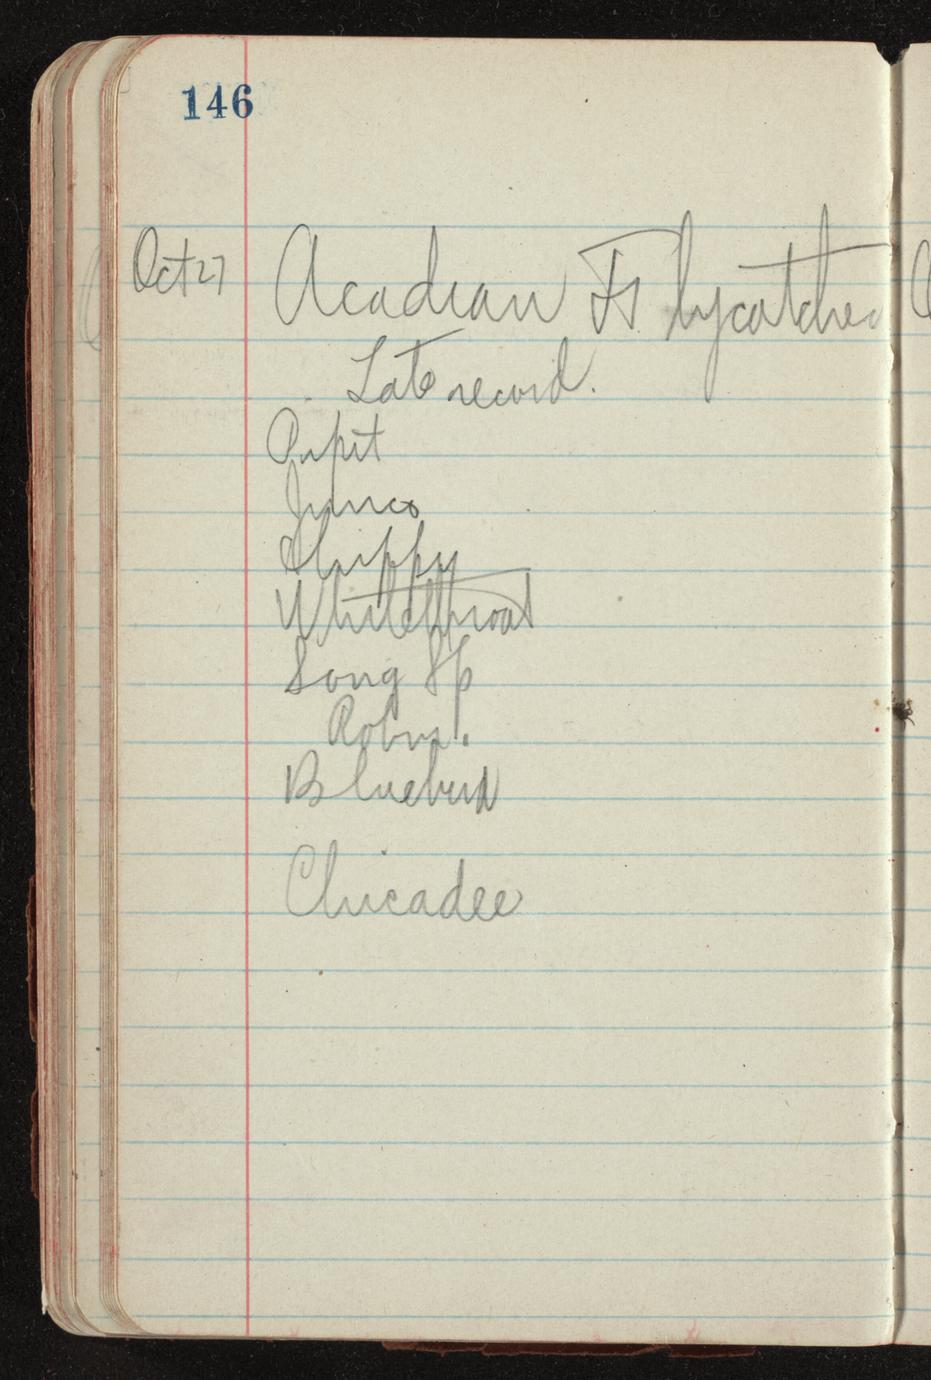 146
Oct 27 Acadian Flycatcher
Late record.
Pipit
Junco
Chippy
Whitethroat
Song Sp
Robin.
Bluebird
Chicadee